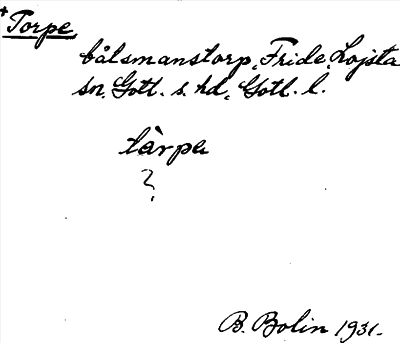 + Torpe
båtsmanstorp, Fride, Lojsta
sn, Gotl. s. hd, Gotl. l.
tàrpa
?
B. Bolin 1931.